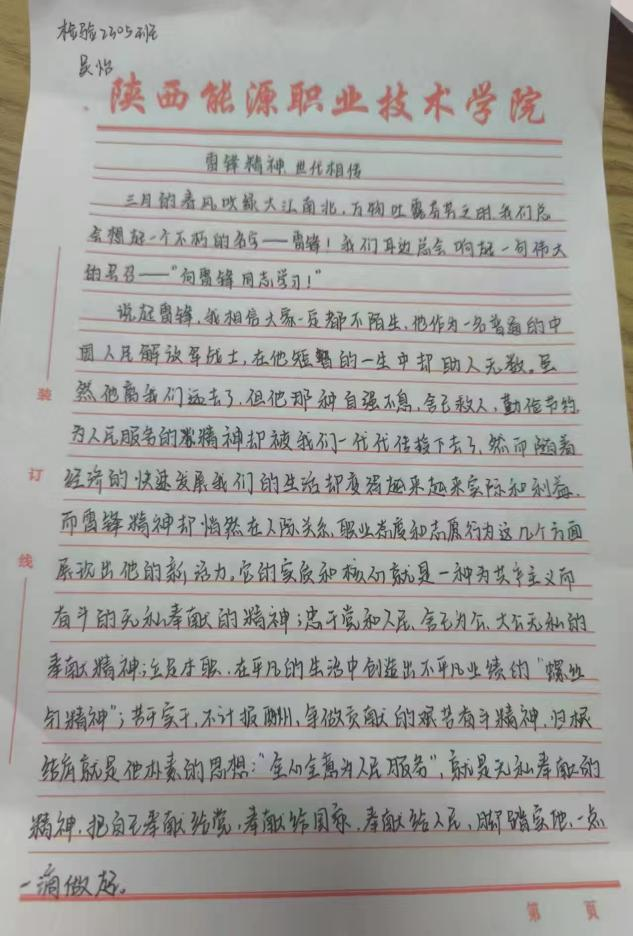 检验2305班
吴怡
陕西能源职业技术学院
雷锋精神 世代相传
三月的春风吹绿大江南北,万物吐露芬芳之时,我们总
会想起一个不朽的名字——雷锋!我们耳边总会响起一句伟大
的号召——“向雷锋同志学习!”
说起雷锋,我相信大家一定都不陌生,他作为一名普通的中
国人民解放军战士,在他短暂的一生中却助人无数。虽
然他离我们远去了,但他那种自强不息,舍己救人,勤俭节约
为人民服务的精神却被我们一代代传接下去了,然而随着
经济的快速发展我们的生活却变得越来越来实际和利益,
而雷锋精神却悄然在人际关系,职业态度和志愿行为这几个方面
展现出他的新活力。它的实质和核心就是一种为共产主义而
奋斗的无私奉献的精神;忠于党和人民、舍己为公、大公无私的
奉献精神;立足本职、在平凡的生活中创造出不平凡业绩的“螺丝
钉精神”;苦干实干,不计报酬,争做贡献的艰苦奋斗精神,归根
结底就是他朴素的思想:“全心全意为人民服务”,就是无私奉献的
精神,把自己奉献给党,奉献给国家,奉献给人民,脚踏实地,一点
一滴做起。
装
订
线
第 页